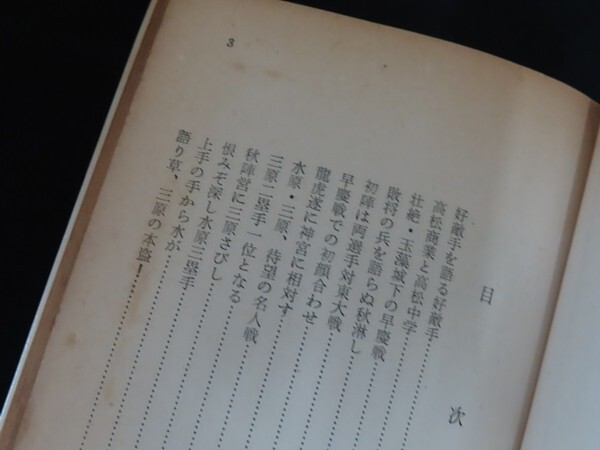 目次
好敵手を語る好敵手
高松商業と高松中学
壮絶・玉藻城下の早慶戦
敗将の兵を語らぬ秋淋し
初陣は両選手対東大戦
早慶戦での初顔合わせ
龍虎遂に神宮に相対す
水原・三原、待望の名人戦
三原二塁手一位となる
秋陣営に三原さびし
恨みぞ深し水原三塁手
上手の手から水が
語り草、三原の本盗！
3